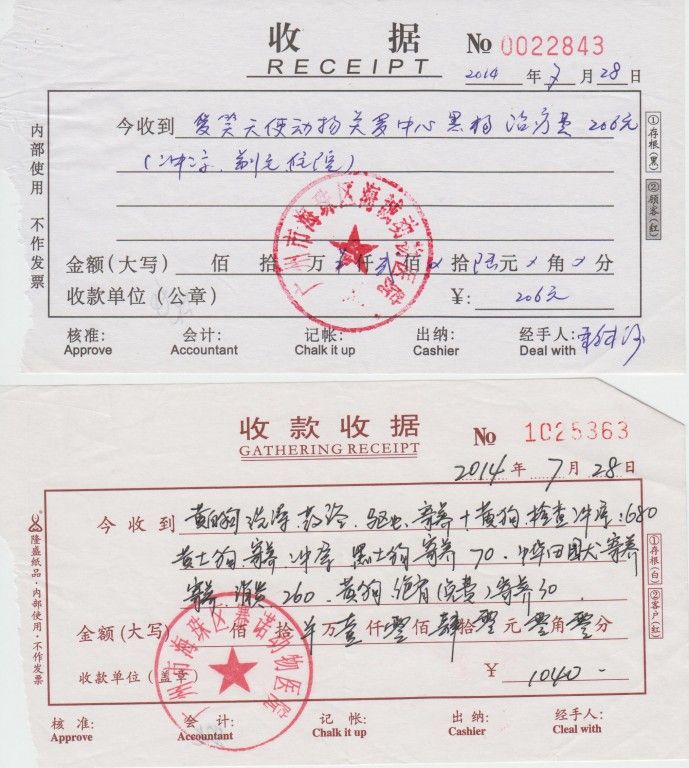 收 据 No 0022843
RECEIPT 2014 年 7 月 28 日
今收到 天使动物 中心 治疗费 206元
住院)
金额(大写) 佰 拾 万 仟 贰 佰 拾 陆 元 角 分
收款单位(公章) ¥: 206元
核准: 会计: 记帐: 出纳: 经手人:
Approve Accountant Chalk it up Cashier Deal with
内部使用 不作发票
①存根(黑)
②顾客(红)
广州市海珠区 动物医院
收款收据 No 1025363
GATHERING RECEIPT
2014 年 7 月 28 日
今收到 黄 狗 洗澡 药浴、驱虫、寄养+黄狗 检查 :680
黄土狗 寄养 黑土狗 寄养 70、中华田 犬寄养
寄养 260、黄狗 寄养30、
金额(大写) 佰 拾 万 壹 仟 零 佰 肆 拾 零 元 零 角 零 分
收款单位(盖章) ¥ 1040-
核 准: 会 计: 记 帐: 出 纳: 经手人:
Approve Accountant Chalk it up Cashier Cleal with
隆盛纸品·内部使用·不作发票
①存根(白)
②客户(红)
广州市海珠区 诺动物医院